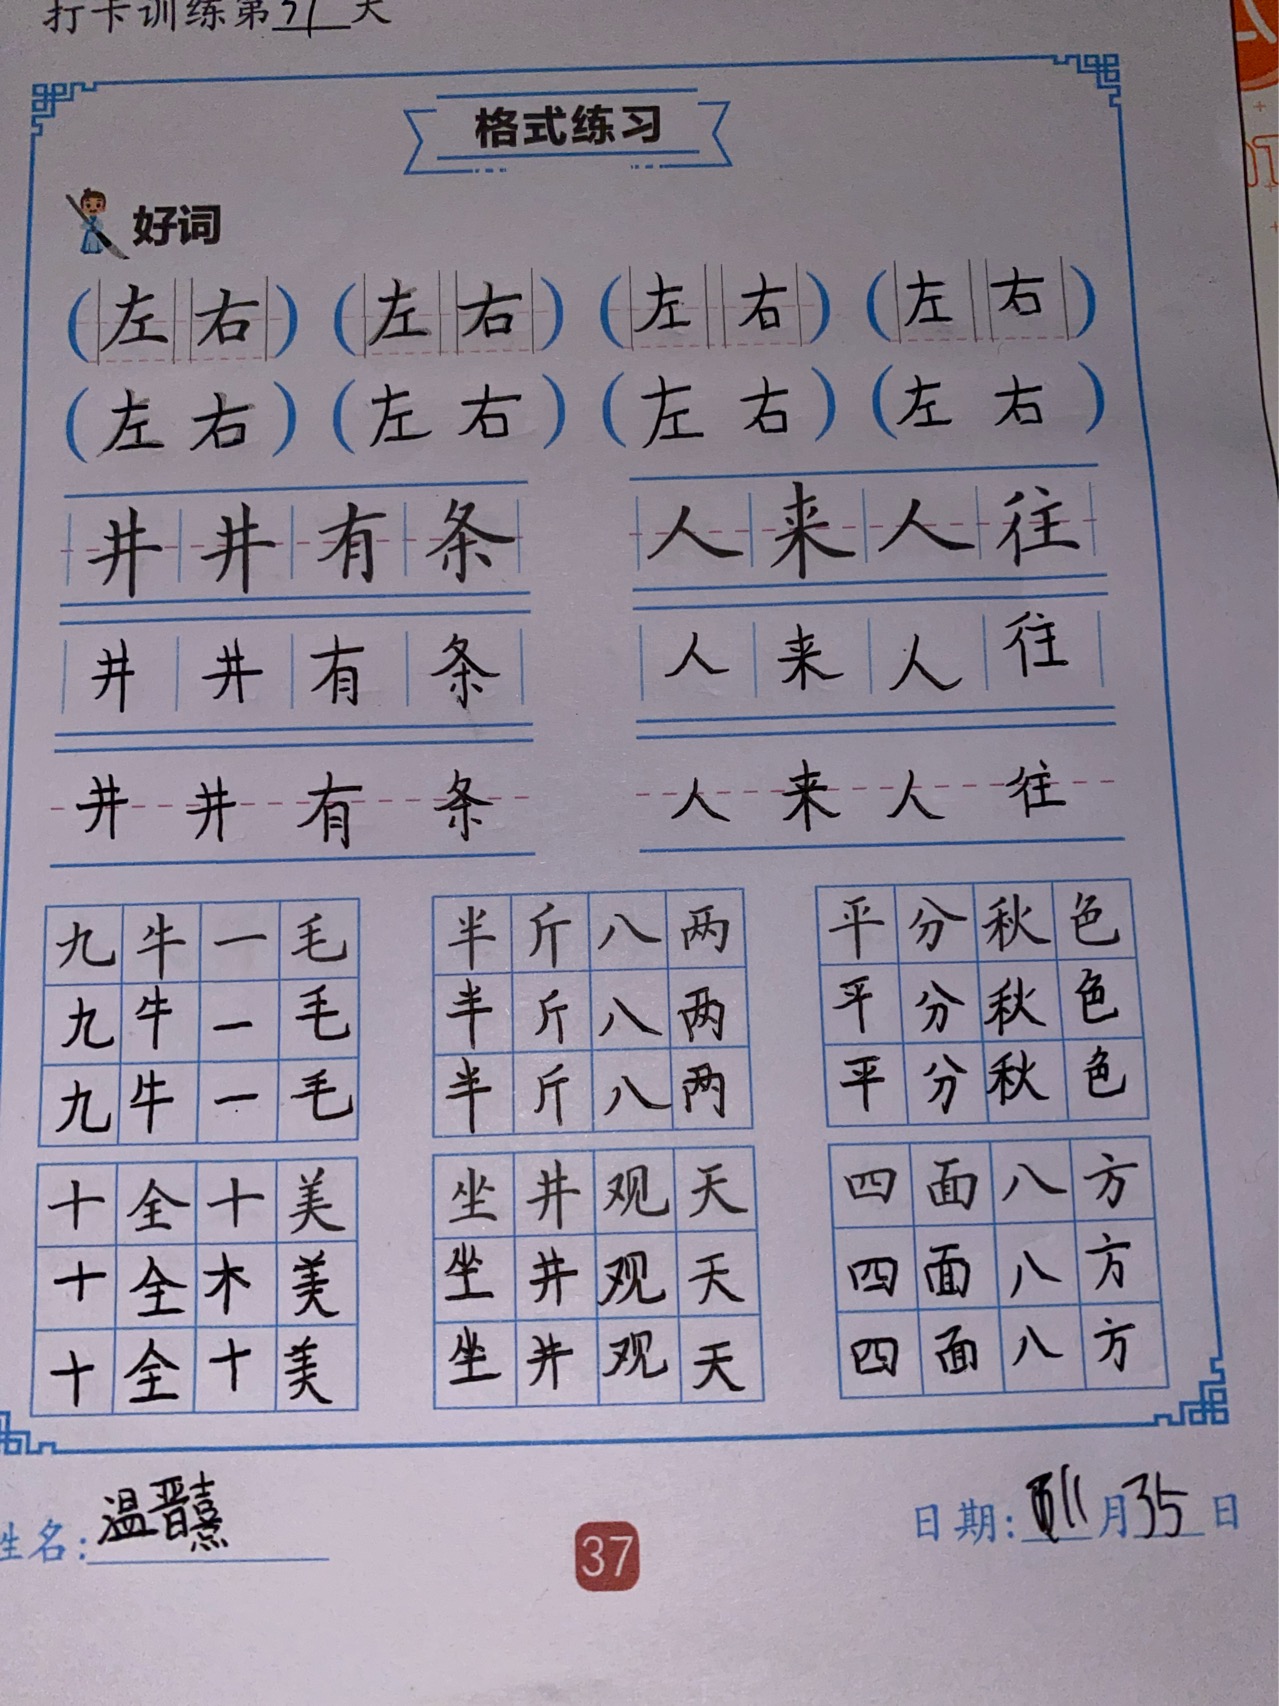 打卡训练第31天
格式练习
好词
(左右) (左右) (左右) (左右)
(左右) (左右) (左右) (左右)
井井有条 人来人往
井井有条 人来人往
井井有条 人来人往
九牛一毛 半斤八两 平分秋色
九牛一毛 半斤八两 平分秋色
九牛一毛 半斤八两 平分秋色
十全十美 坐井观天 四面八方
十全木美 坐井观天 四面八方
十全十美 坐井观天 四面八方
姓名:温晋熹 日期:11月35日
37